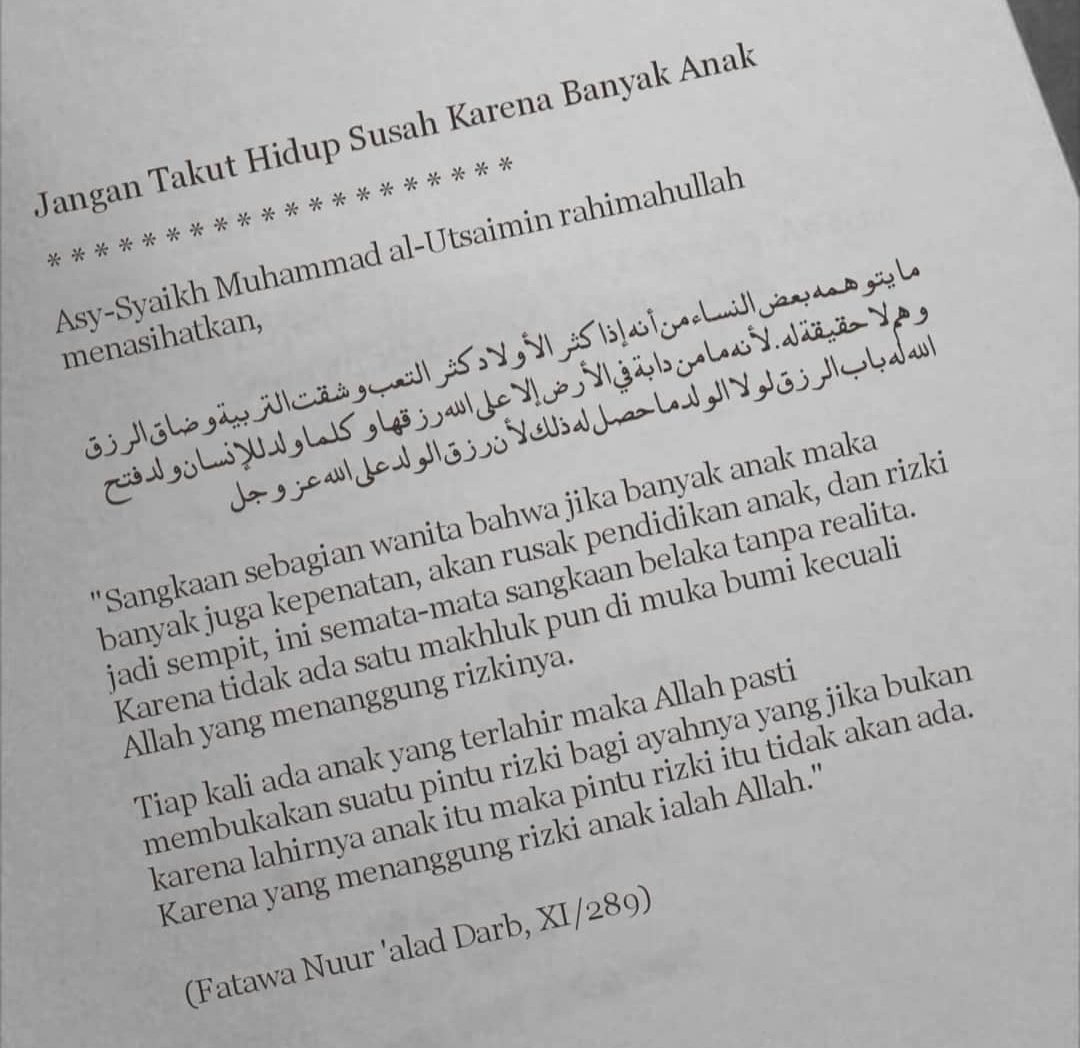 Jangan Takut Hidup Susah Karena Banyak Anak
* * * * * * * * * * * * * * * * * * * *
Asy-Syaikh Muhammad al-Utsaimin rahimahullah
menasihatkan,
ما يتوهمه بعض النساء من أنه إذا كثر الأولاد كثر التعب و شقت التربية و ضاق الرزق
وهم لا حقيقة له. لأنه ما من دابة في الأرض إلا على الله رزقها و كلما ولد للإنسان ولد فتح
الله له باب الرزق لولا الولد ما حصل له ذلك لأن رزق الولد على الله عز و جل
"Sangkaan sebagian wanita bahwa jika banyak anak maka
banyak juga kepenatan, akan rusak pendidikan anak, dan rizki
jadi sempit, ini semata-mata sangkaan belaka tanpa realita.
Karena tidak ada satu makhluk pun di muka bumi kecuali
Allah yang menanggung rizkinya.
Tiap kali ada anak yang terlahir maka Allah pasti
membukakan suatu pintu rizki bagi ayahnya yang jika bukan
karena lahirnya anak itu maka pintu rizki itu tidak akan ada.
Karena yang menanggung rizki anak ialah Allah."
(Fatawa Nuur 'alad Darb, XI/289)